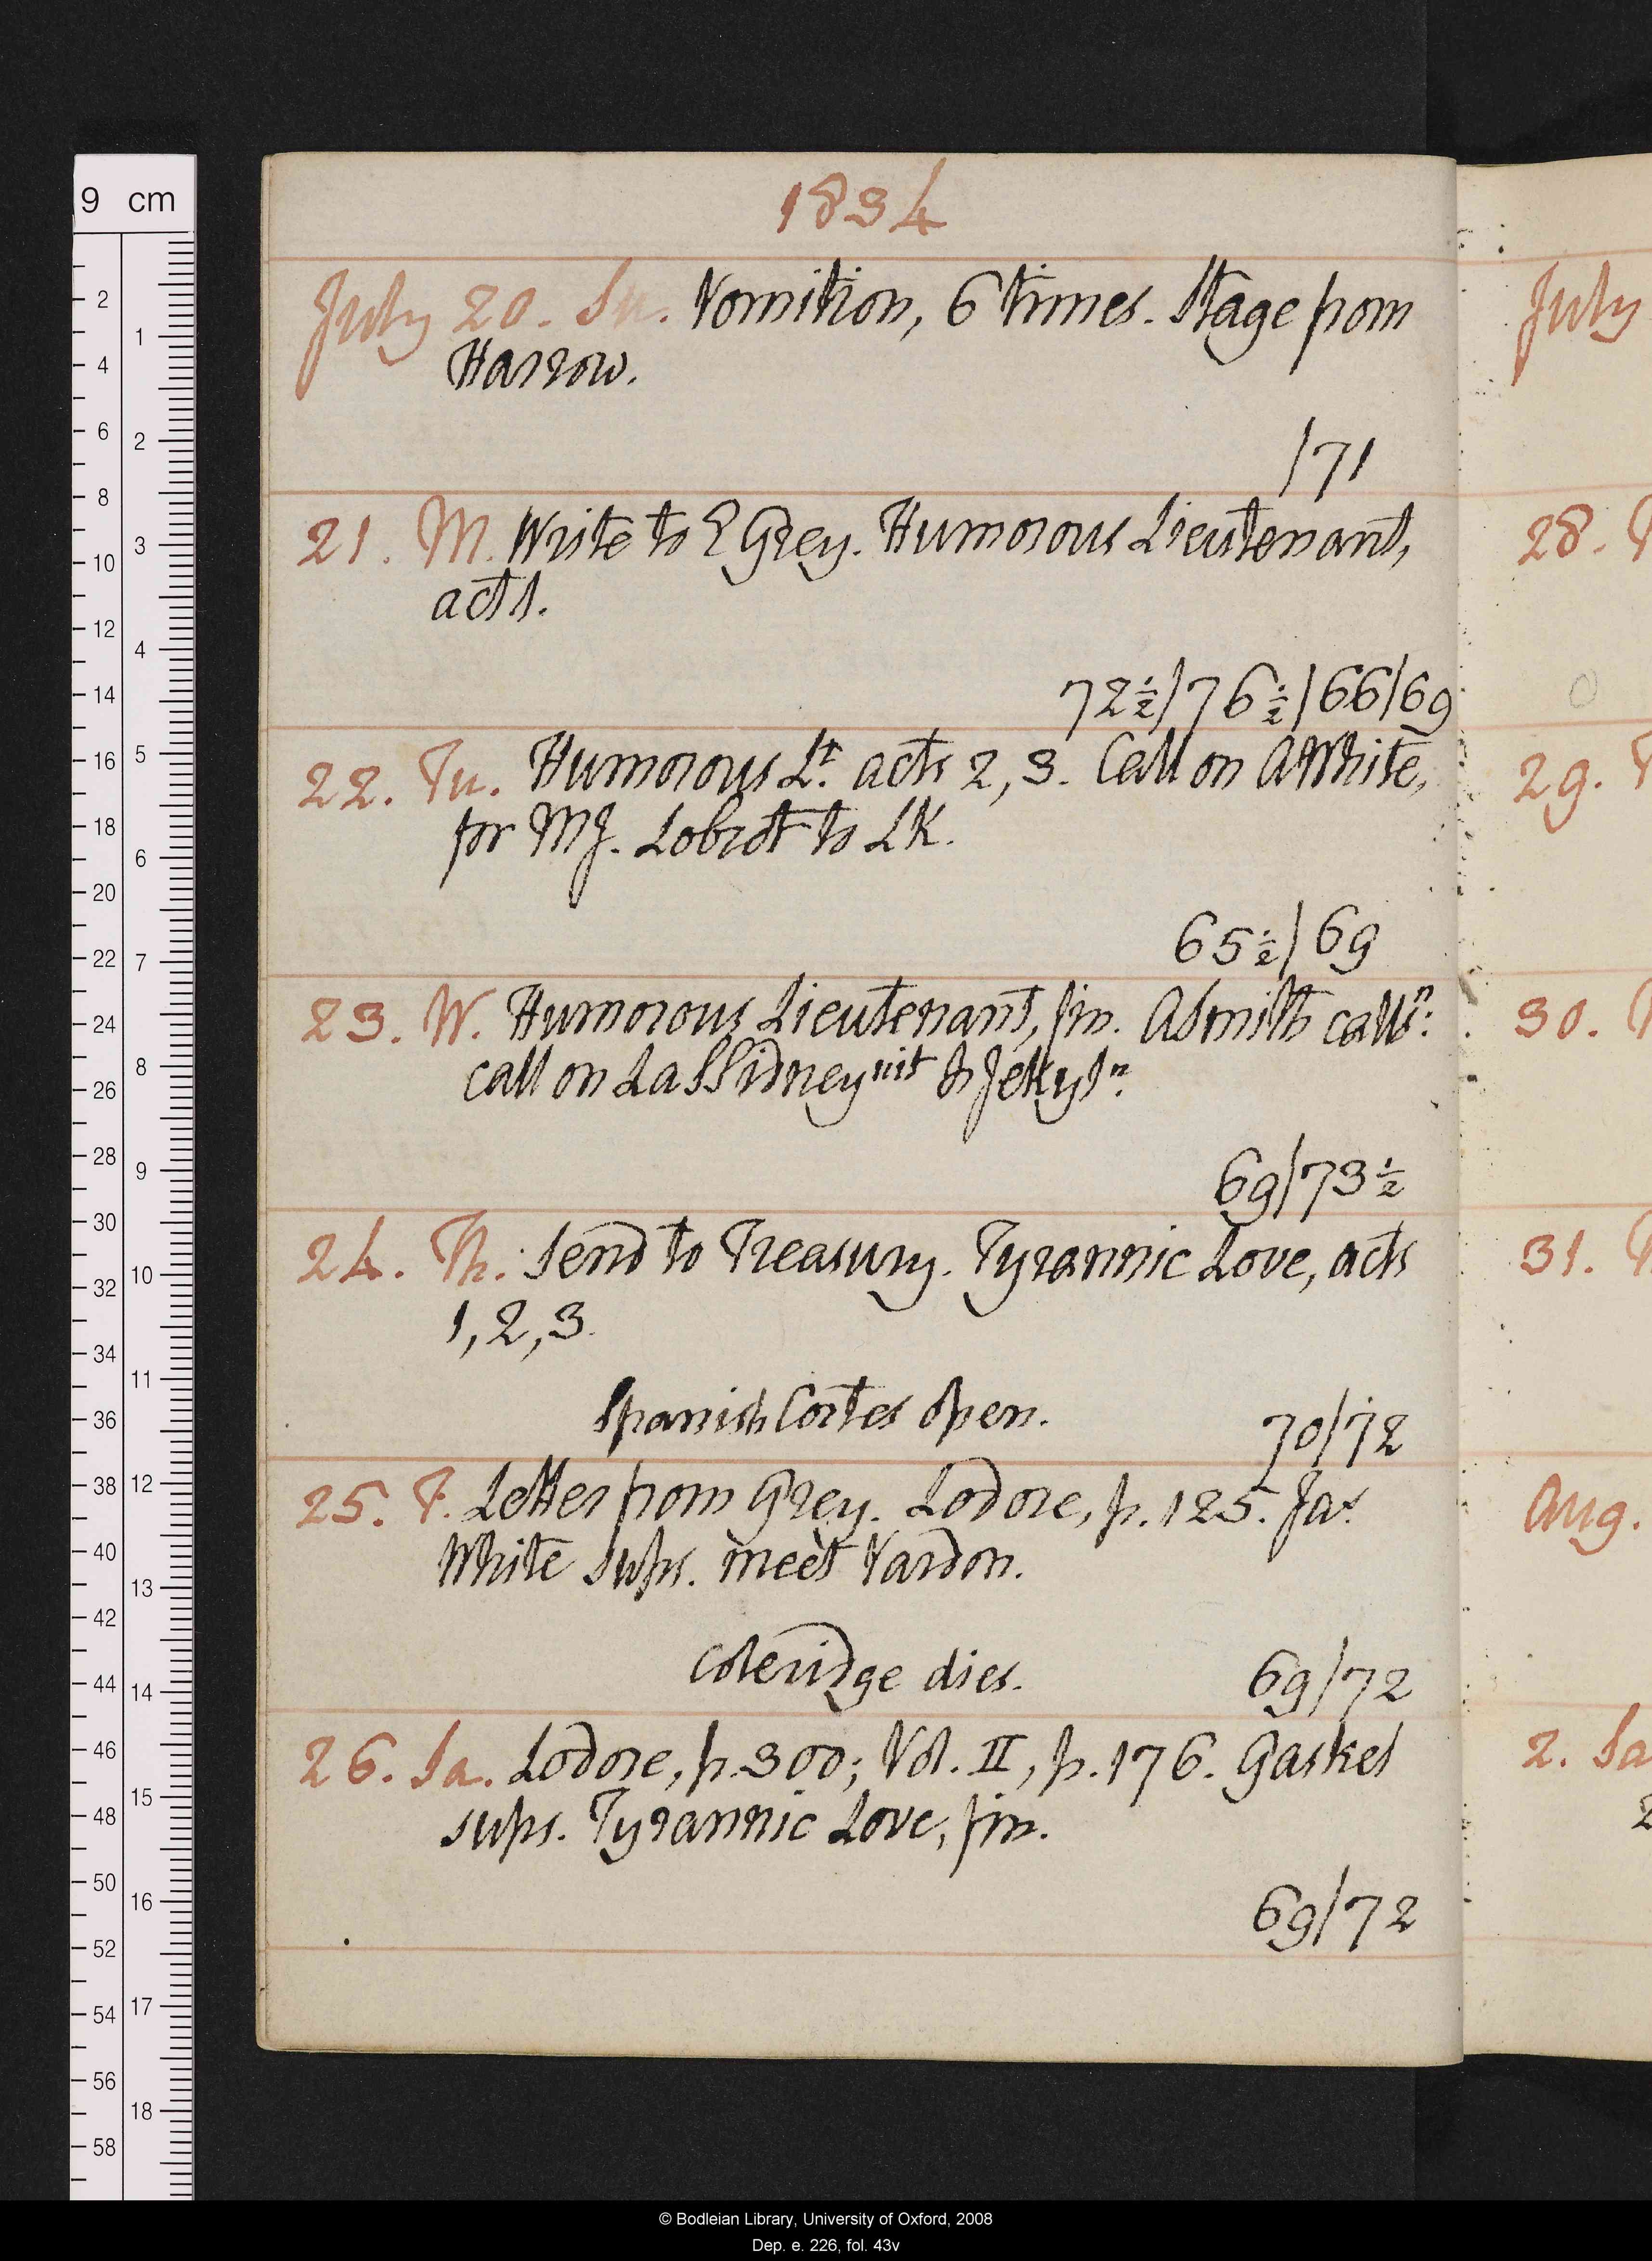 1834
July 20. Su. Vomition, 6 times. Stage from
Harrow.
/71
21. M. Write to E Grey. Humorous Lieutenant,
act 1.
72½/76½/66/69
22. Tu. Humorous Lt. acts 2, 3. Call on A White,
for MJ. Lobrot to LK.
65½/69
23. W. Humorous Lieutenant, fin. A Smith calls n:
call on La S Sidney nit & Jekyl n.
69/73½
24. Th. Send to Treasury. Tyrannic Love, acts
1, 2, 3.
Spanish Cortes open.
70/72
25. F. Letter from Grey. Lodore, p. 125. Jas
White sups. meet Vardon.
Coleridge dies.
69/72
26. Sa. Lodore, p. 300; Vol. II, p. 176. Gaskel
sups. Tyrannic Love, fin.
69/72
July
28.
29.
30.
31.
Aug.
2. Sa
9 cm
2 4 6 8 10 12 14 16 18 20 22 24 26 28 30 32 34 36 38 40 42 44 46 48 50 52 54 56 58
1 2 3 4 5 6 7 8 9 10 11 12 13 14 15 16 17 18
© Bodleian Library, University of Oxford, 2008
Dep. e. 226, fol. 43v